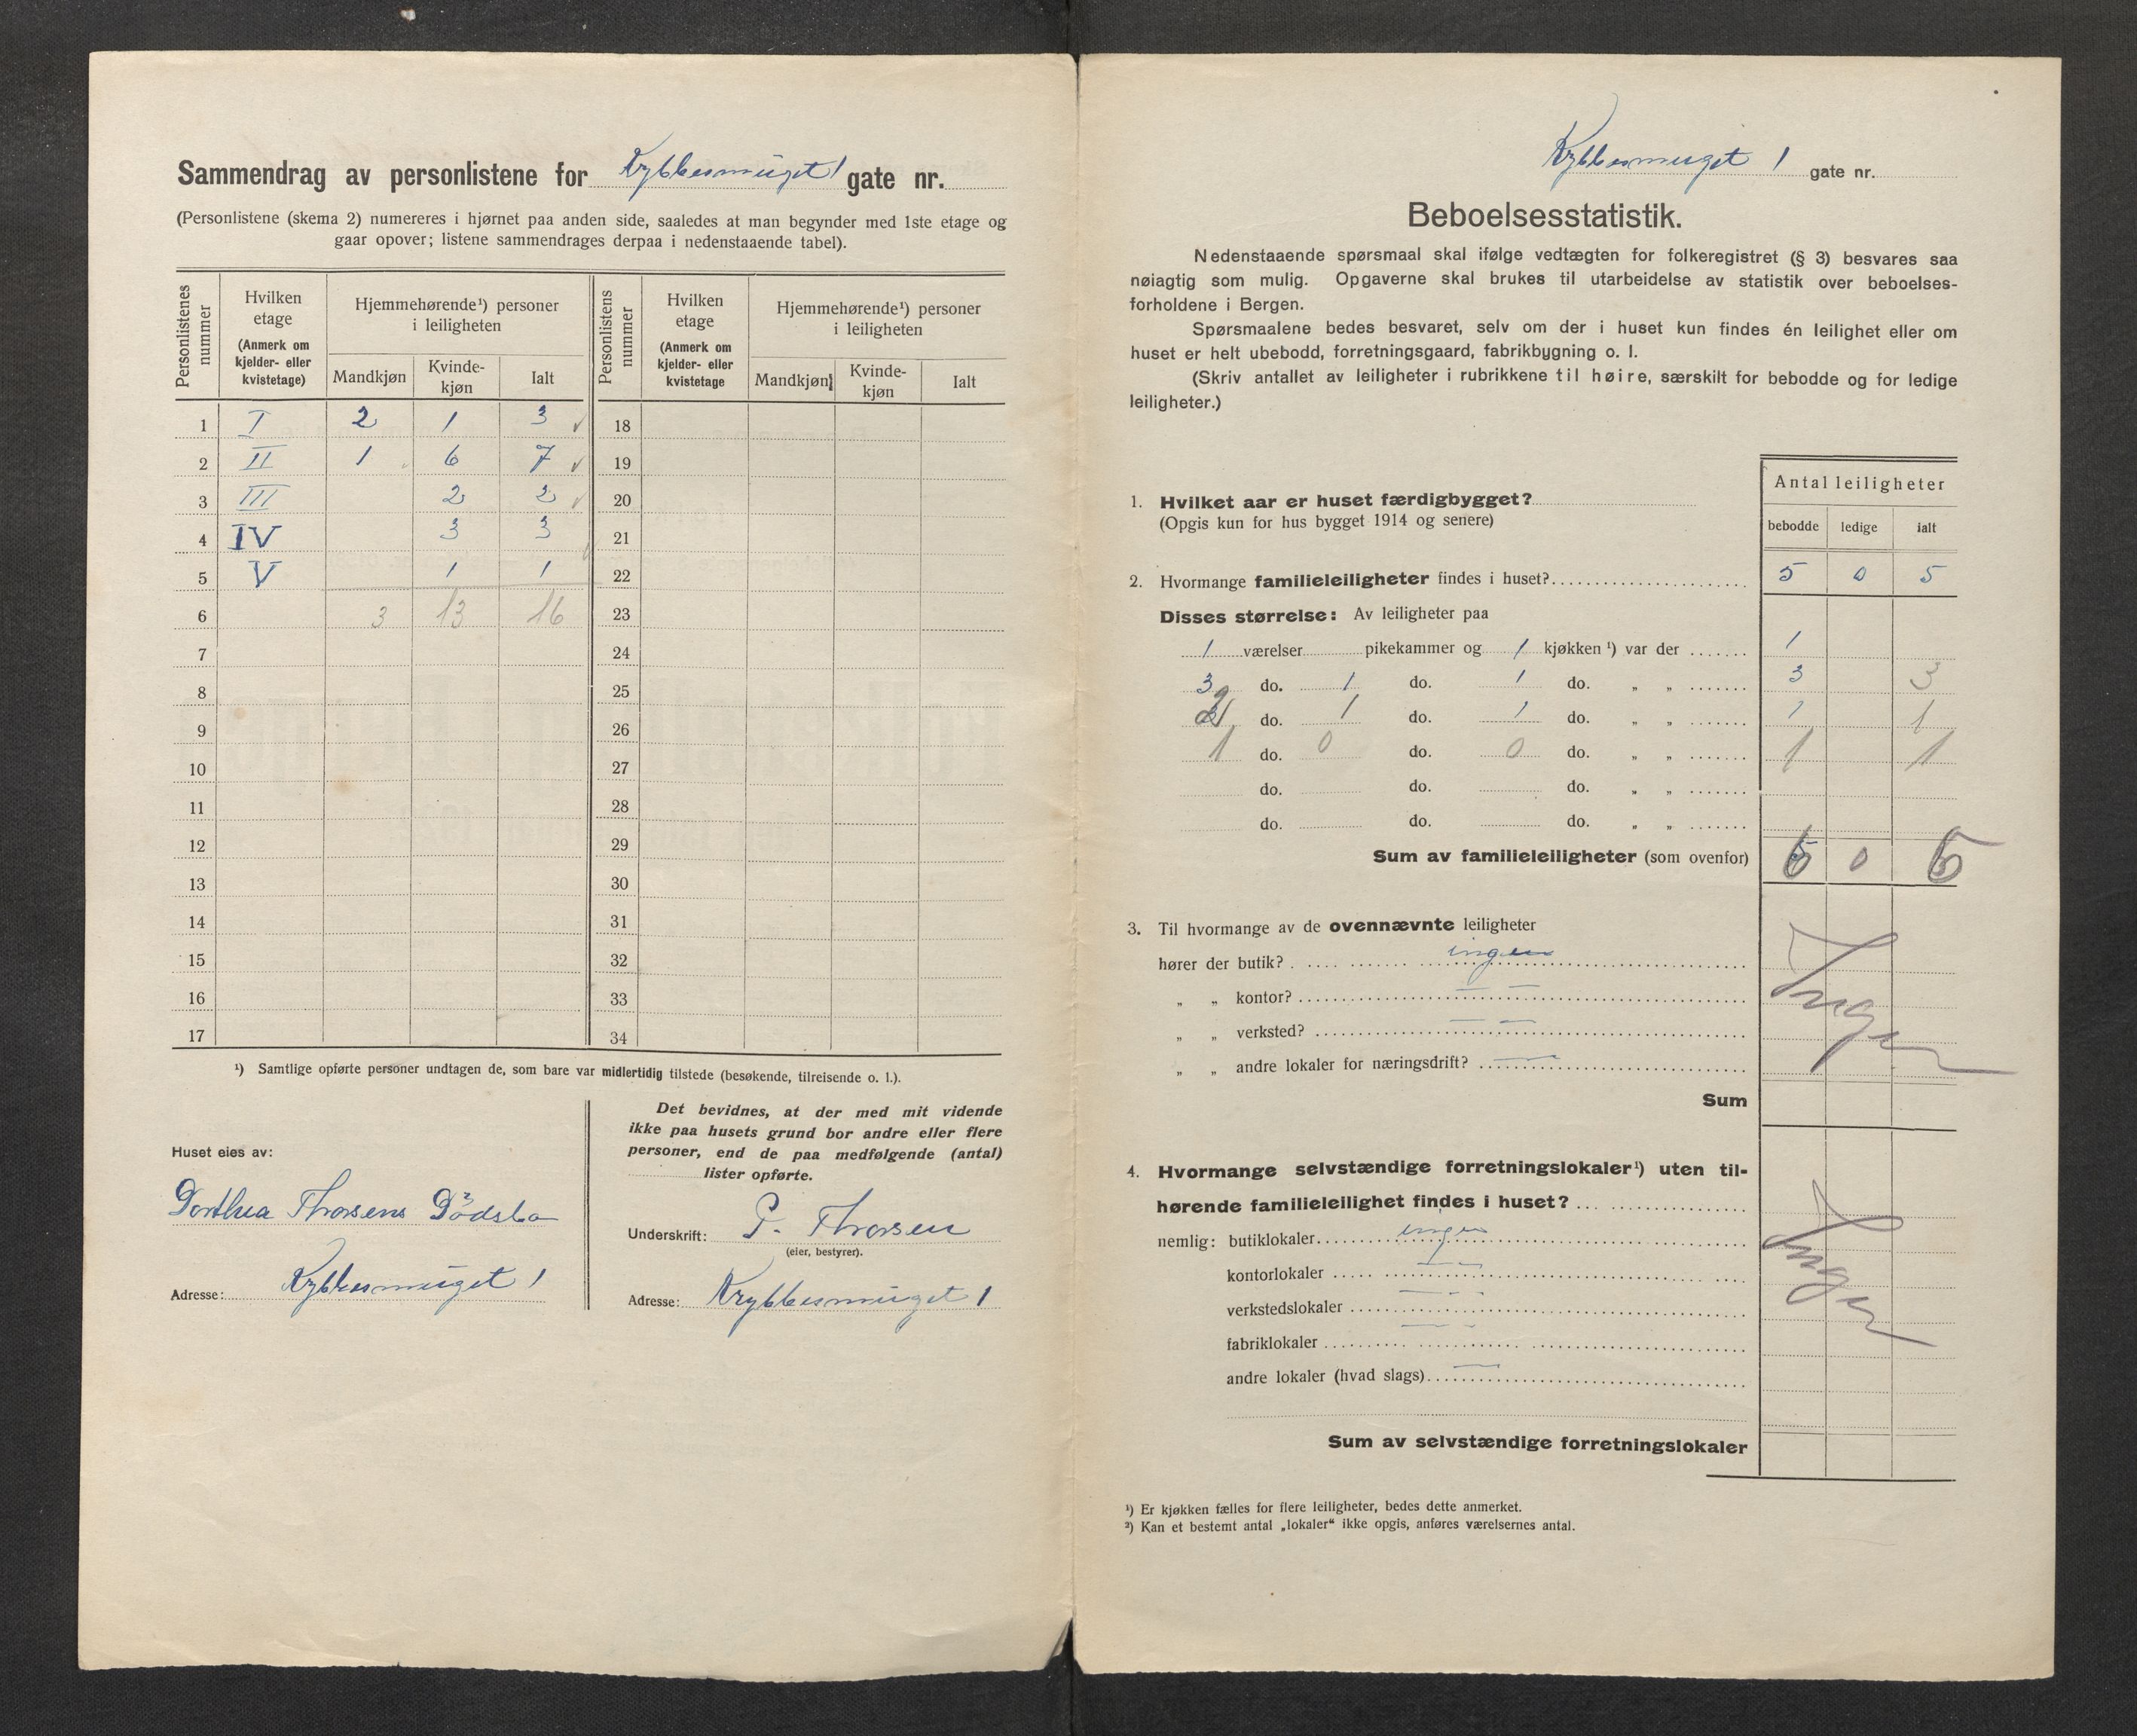 Sammendrag av personlistene for Krybbesmuget 1 gate nr.
(Personlistene (skema 2) numereres i hjørnet paa anden side, saaledes at man begynder med 1ste etage og
gaar opover; listene sammendrages derpaa i nedenstaaende tabel).
Personlistenes nummer
Hvilken etage (Anmerk om kjelder- eller kvistetage)
Hjemmehørende¹) personer i leiligheten
Mandkjøn Kvinde-kjøn Ialt
Personlistens nummer
Hvilken etage (Anmerk om kjelder- eller kvistetage
Hjemmehørende¹) personer i leiligheten
Mandkjøn Kvinde-kjøn Ialt
1 I 2 1 3 ✓ 18
2 II 1 6 7 ✓ 19
3 III 2 2 ✓ 20
4 IV 3 3 21
5 V 1 1 22
6 3 13 16 23
7 24
8 25
9 26
10 27
11 28
12 29
13 30
14 31
15 32
16 33
17 34
¹) Samtlige opførte personer undtagen de, som bare var midlertidig tilstede (besøkende, tilreisende o. l.).
Huset eies av:
Dorthea Thorsens Dödsbo
Adresse: Krybbesmuget 1
Det bevidnes, at der med mit vidende
ikke paa husets grund bor andre eller flere
personer, end de paa medfølgende (antal)
lister opførte.
Underskrift: P. Thorsen
(eier, bestyrer).
Adresse: Krybbesmuget 1
Krybbesmuget 1 gate nr.
Beboelsesstatistik.
Nedenstaaende spørsmaal skal ifølge vedtægten for folkeregistret (§ 3) besvares saa
nøiagtig som mulig. Opgaverne skal brukes til utarbeidelse av statistik over beboelses-
forholdene i Bergen.
Spørsmaalene bedes besvaret, selv om der i huset kun findes én leilighet eller om
huset er helt ubebodd, forretningsgaard, fabrikbygning o. l.
(Skriv antallet av leiligheter i rubrikkene til høire, særskilt for bebodde og for ledige
leiligheter.)
Antal leiligheter
bebodde ledige ialt
1. Hvilket aar er huset færdigbygget?
(Opgis kun for hus bygget 1914 og senere)
2. Hvormange familieleiligheter findes i huset? 5 0 5
Disses størrelse: Av leiligheter paa
1 værelser pikekammer og 1 kjøkken ¹) var der 1
3 do. 1 do. 1 do. „ „ 3 3
2 do. 1 do. 1 do. „ „ 1 1
1 do. 0 do. 0 do. „ „ 1 1
do. do. do. „ „
do. do. do. „ „
Sum av familieleiligheter (som ovenfor) 5 0 5
3. Til hvormange av de ovennævnte leiligheter
hører der butik? ingen
„ „ kontor? — —
„ „ verksted? — —
„ „ andre lokaler for næringsdrift? —
Ingen
Sum
4. Hvormange selvstændige forretningslokaler¹) uten til-
hørende familieleilighet findes i huset?
nemlig: butiklokaler ingen
kontorlokaler — —
verkstedslokaler — —
fabriklokaler — —
andre lokaler (hvad slags) —
Ingen
Sum av selvstændige forretningslokaler
¹) Er kjøkken fælles for flere leiligheter, bedes dette anmerket.
²) Kan et bestemt antal „lokaler“ ikke opgis, anføres værelsernes antal.